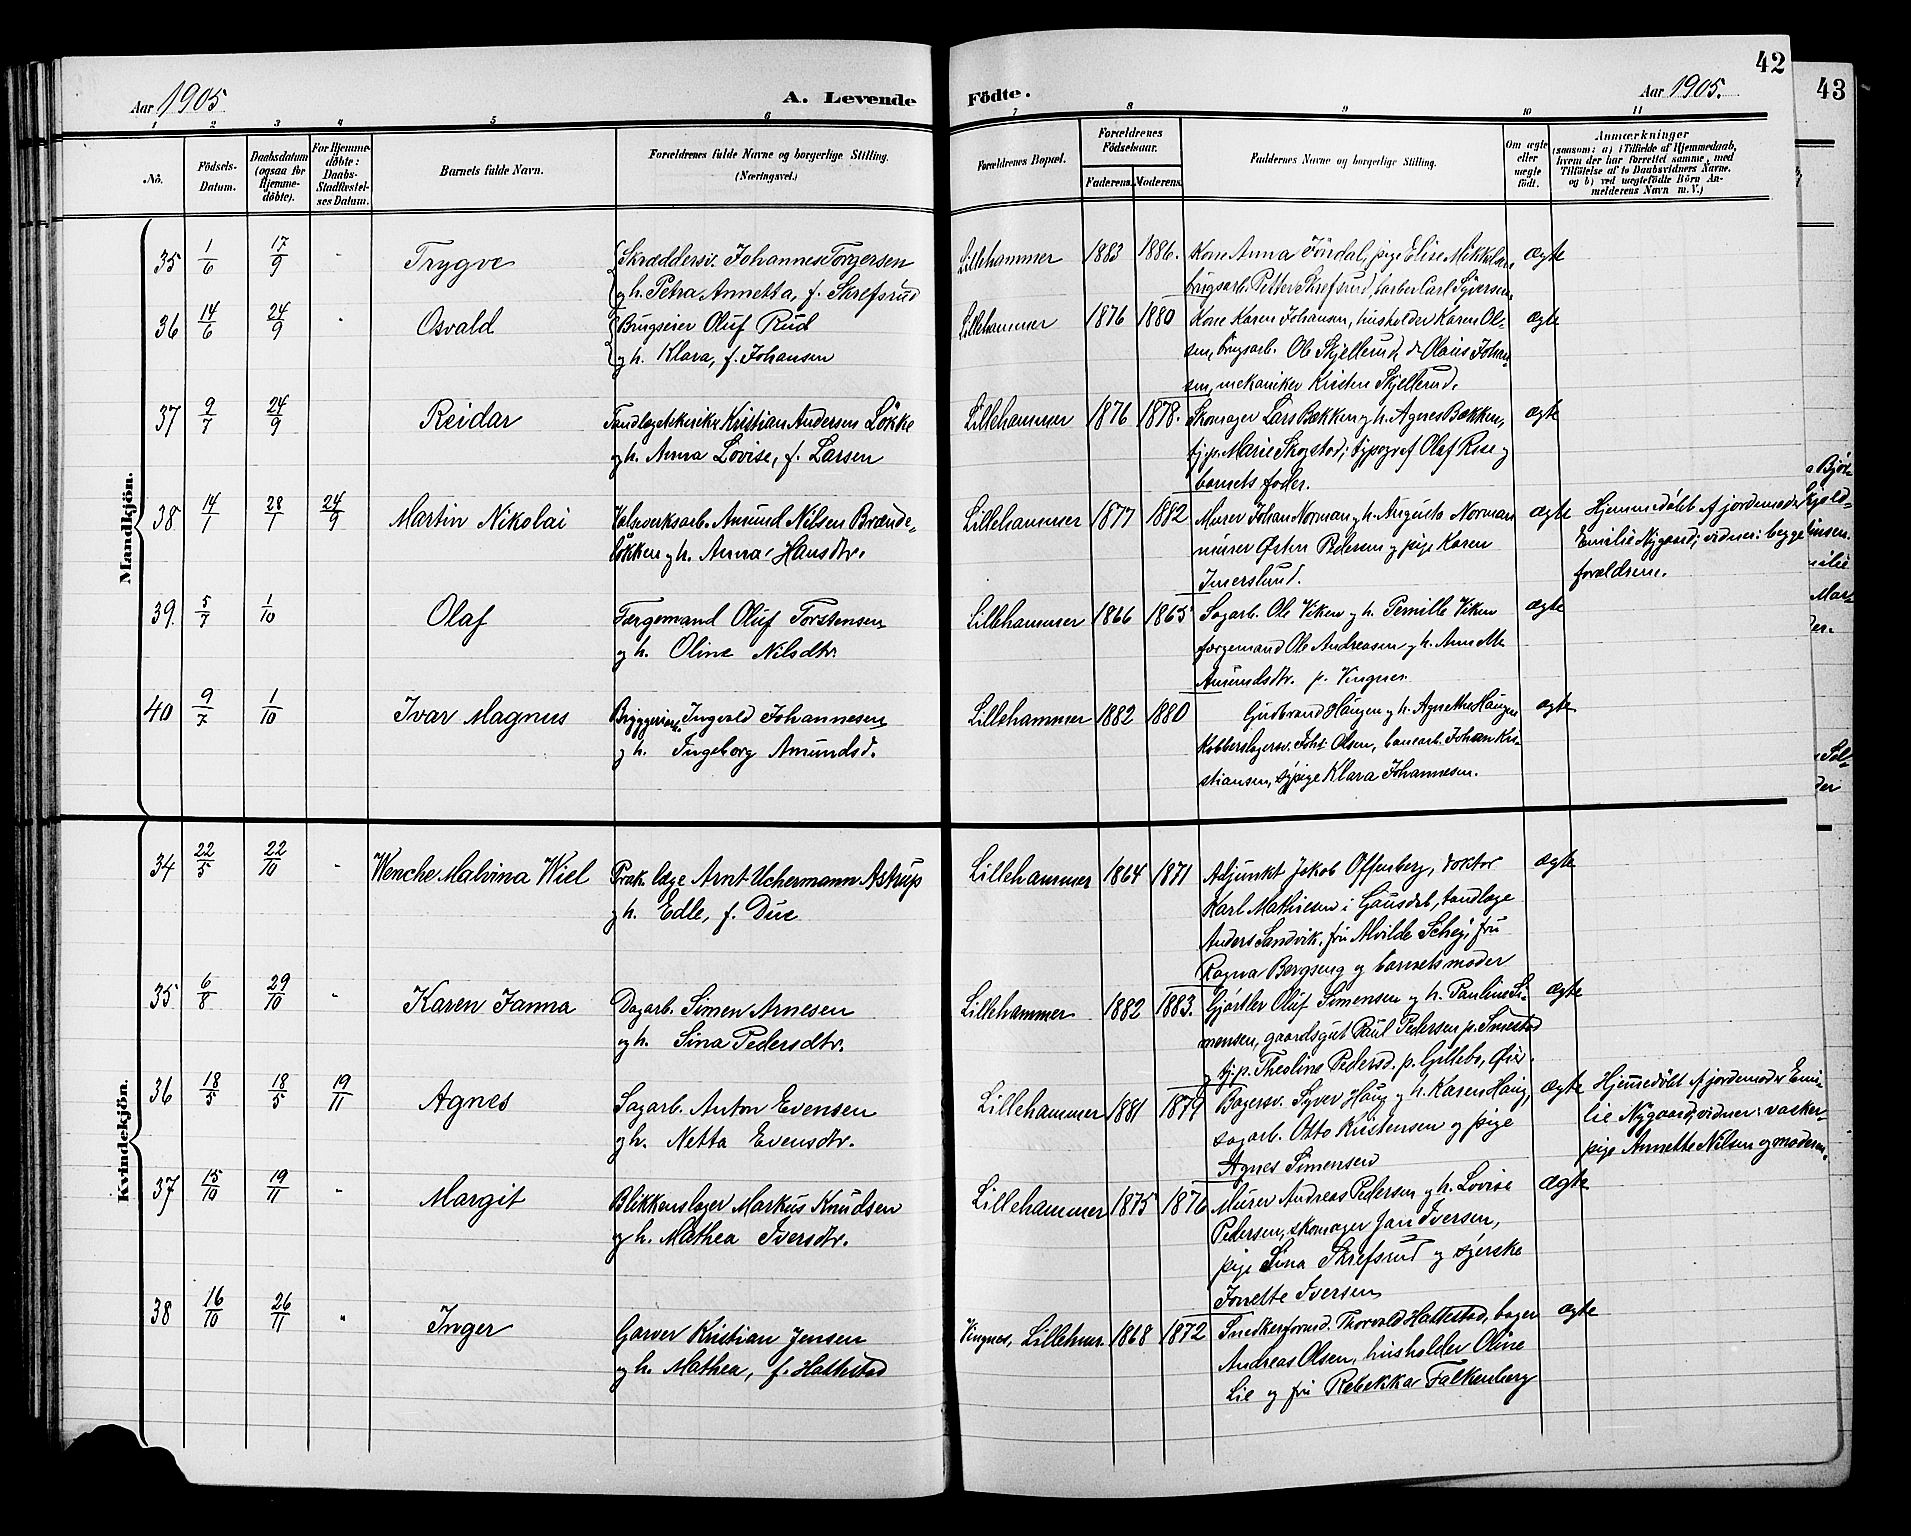 42
43
Aar 1905.
A. Levende
Födte.
Aar 1905.
1 2 3 4 5 6 7 8 9 10 11
No.
Födsels-
Datum.
Daabsdatum
(ogsaa for
Hjemme-
döbte).
For Hjemme-
döbte:
Daabs-
Stadfæstel-
ses Datum.
Barnets fulde Navn.
Forældrenes fulde Navne og borgerlige Stilling.
(Næringsvei.)
Forældrenes Bopæl.
Forældrenes
Födselsaar.
Faderens.
Moderens.
Faddernes Navne og borgerlige Stilling.
Om ægte
eller
uægte
födt.
Anmærkninger
(saasom: a) i Tilfælde af Hjemmedaab,
hvem der har forrettet samme, med
Tilföielse af to Daabsvidners Navne.
og b) ved uægtefödte Börn An-
melderens Navn m. V.)
Mandkjön.
35 1/6 17/9 - Trygve
Skræddersv. Johannes Torgersen
og h. Petra Annetta, f. Skrefsrud
Lillehammer 1883 1886.
Kone Anna Jöndal, pige Elise Mikkelsen,
brugsarb. Petter Skrefsrud, barber Carl Syversen
ægte
36 14/6 24/9 - Osvald
Brugseier Oluf Rud
og h. Klara, f. Johansen
Lillehammer 1876 1880
Kone Karen Johansen, husholder Karen Ol-
sen, brugsarb. Ole Skjellerud, do Olaus Johan-
sen, mekaniker Kristen Skjellerud.
ægte
37 9/7 24/9 Reidar
Tandlægetekniker Kristian Andersen Lökke
og h. Anna Lovise, f. Larsen
Lillehammer 1876 1878.
Skomager Lars Bækken og h. Agnes Bækken,
tj.p. Marie Skogstad, typograf Olaf Rise og
barnets fader.
ægte
38 14/1 28/1 24/9 Martin Nikolai
Valseverksarb. Amund Nilsen Brænde-
lökken og h. Anna Hansdtr.
Lillehammer 1877 1882
Murer Johan Norman og h. Augusta Norman
murer Østen Pedersen og pige Karen
Imerslund.
ægte
Hjemmedöbt af jordemoder
Emilie Nygaard; vidner: begge
forældrene.
39. 5/7 1/10 Olaf
Færgemand Oluf Torstensen
og h. Oline Nilsdtr.
Lillehammer 1866 1865
Sagarb. Ole Viken og h. Pernille Viken
færgemand Ole Andreasen og h. Anne M.
Amundsdtr. p. Vingnes
ægte
40 9/7 1/10 Ivar Magnus
Ingvald Johannesen
og h. Ingeborg Amundsd.
Lillehammer 1882 1880
Gudbrand Haugen og h. Agnethe Haugen
Kobberslagersv. Johs Olsen, banearb. Johan Kri-
stiansen, sypige Klara Johannesen.
ægte
Kvindekjön.
34 22/5 22/10 - Wenche Malvina Wiel
Prak. læge Arnt Uchermann Astrup
og h. Edle, f. Due
Lillehammer 1864 1871
Adjunkt Jakob Offenberg, doktor
Karl Mathiesen i Gausdal, tandlæge
Anders Sandvik, fru Alvilde Schej, fru
Ragna Bergseng og barnets moder
ægte
35 6/8 29/10 - Karen Janna
Dagarb. Simen Arnesen
og h. Sina Pedersdtr.
Lillehammer 1882 1883.
Gjørtler Oluf Simensen og h. Pauline Si-
mensen, gaardsgut Paul Pedersen p. Smestad
og tj.p. Theoline Pedersd. p. Gillebo, Øier.
ægte
36 18/5 18/5 19/11 Agnes
Sagarb. Anton Evensen
og h. Netta Evensdtr.
Lillehammer 1881 1879
Bagersv. Syver Haug og h. Karen Haug,
sagarb. Otto Kristensen og pige
Agnes Simensen
ægte
Hjemmedöbt af jordemoder Emi-
lie Nygaard; vidner: vasker-
pige Annette Nilsen og moderen.
37 15/10 19/11 - Margit
Blikkenslager Markus Knudsen
og h. Mathea Iversdtr.
Lillehammer 1875 1876
Murer Andreas Pedersen og h. Lovise
Pedersen, skomager Jan Iversen,
pige Sina Skrefsrud og syerske
Jonette Iversen
ægte
38 16/10 26/11 - Inger
Garver Kristian Jensen
og h. Mathea, f. Hattestad
Vingnes, Lillehmr. 1868 1872
Snedkerforvd. Thorvald Hattestad, bager
Andreas Olsen, husholder Oline
Lie og fru Rebekka Falkenberg
ægte